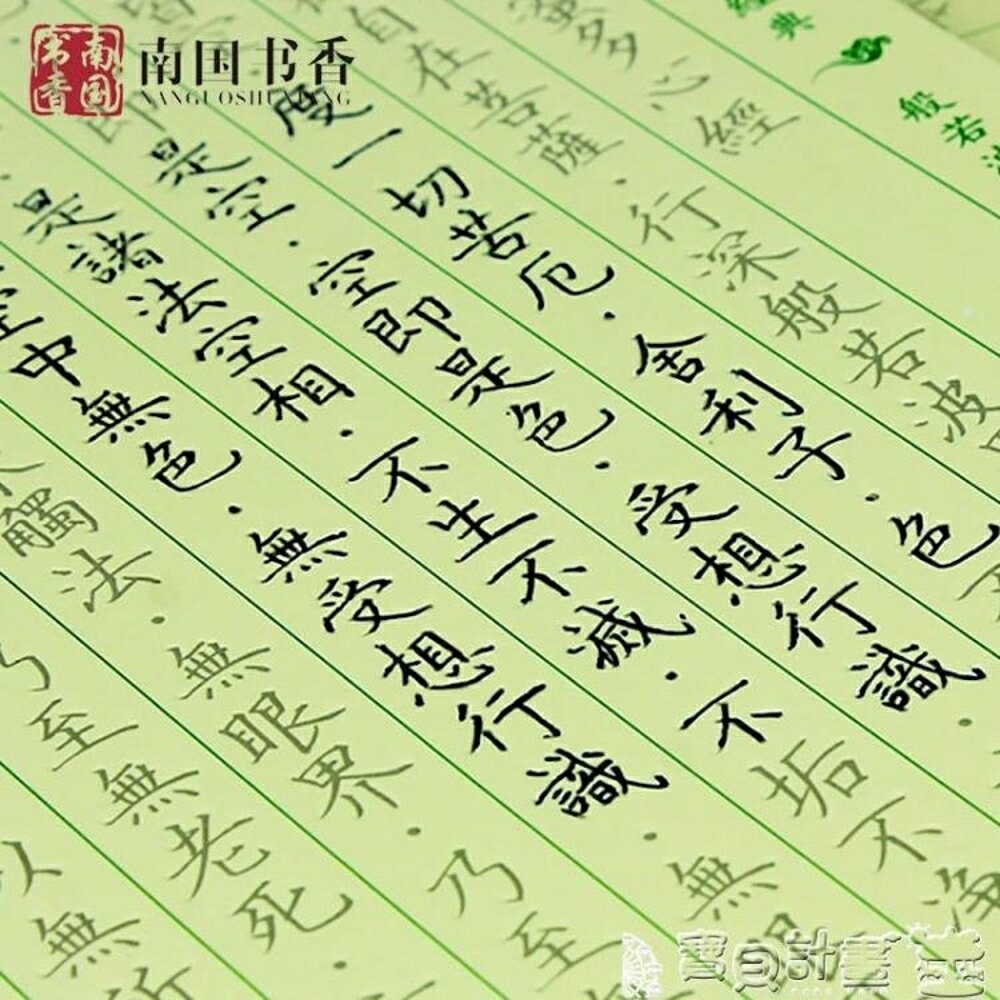 南国书香
南国书香
NANGUOSHUXIANG
經典
般若波
多心經
自在菩薩.行深般若波
度一切苦厄.舍利子.色不
即是空.空即是色.受想行識.
是諸法空相.不生不滅.不垢不净
空中無色.無受想行識.無眼
觸法.無眼界.乃至
乃至無老死
以無所
寶貝計畫